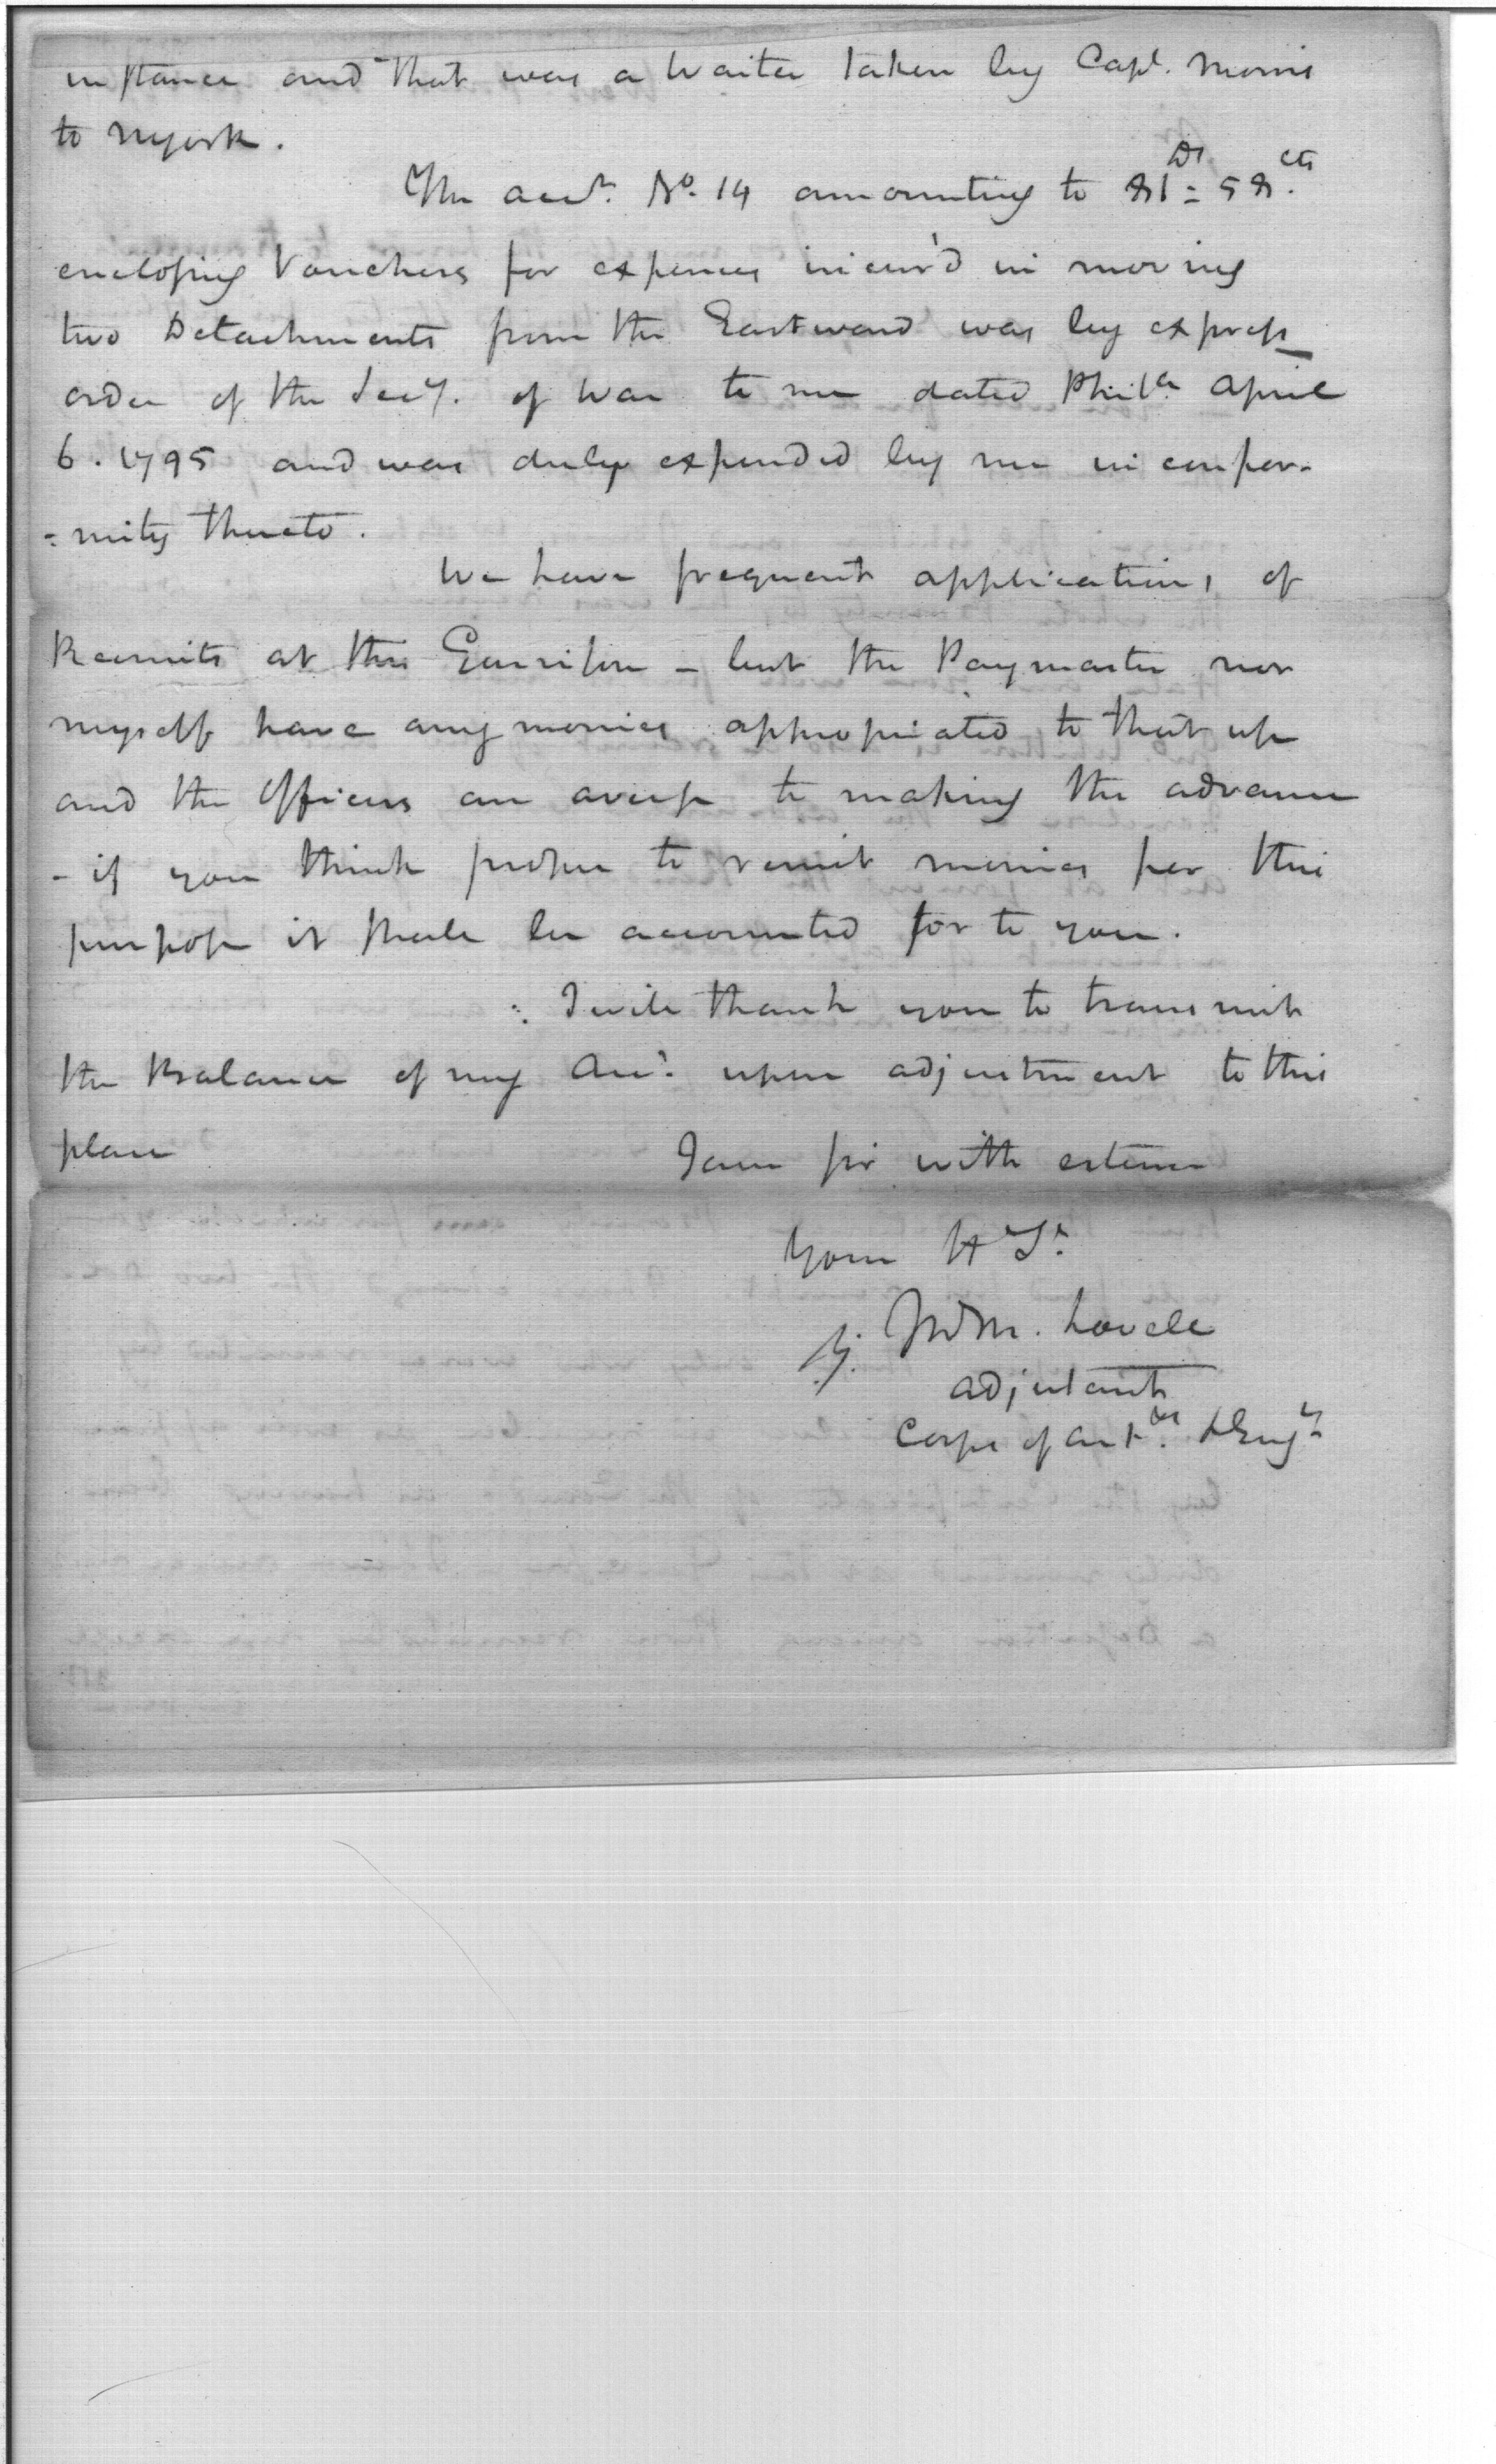 instance and that was a Waiter taken by Capt. Morris
to NYork.
The acct. No. 14 amounting to 81 Ds = 58 cts.
enclosing Vouchers for expences incurr'd in moving
two Detachments from the Eastward was by express
order of the Secy. of War to me dated Phila. April
6. 1795 and was duly expended by me in confor-
-mity thereto.
We have frequent applications of
Recruits at this Garrison - but the Paymaster nor
myself have any monies appropriated to that use
and the Officers are averse to making the advance
- if you think proper to remit monies for this
purpose it shall be accounted for to you.
I will thank you to transmit
the Balance of my Acct. upon adjustment to this
place
I am sir with esteem
Your H St.
Lovell
adjutant
Corps of Artrs. & Engrs